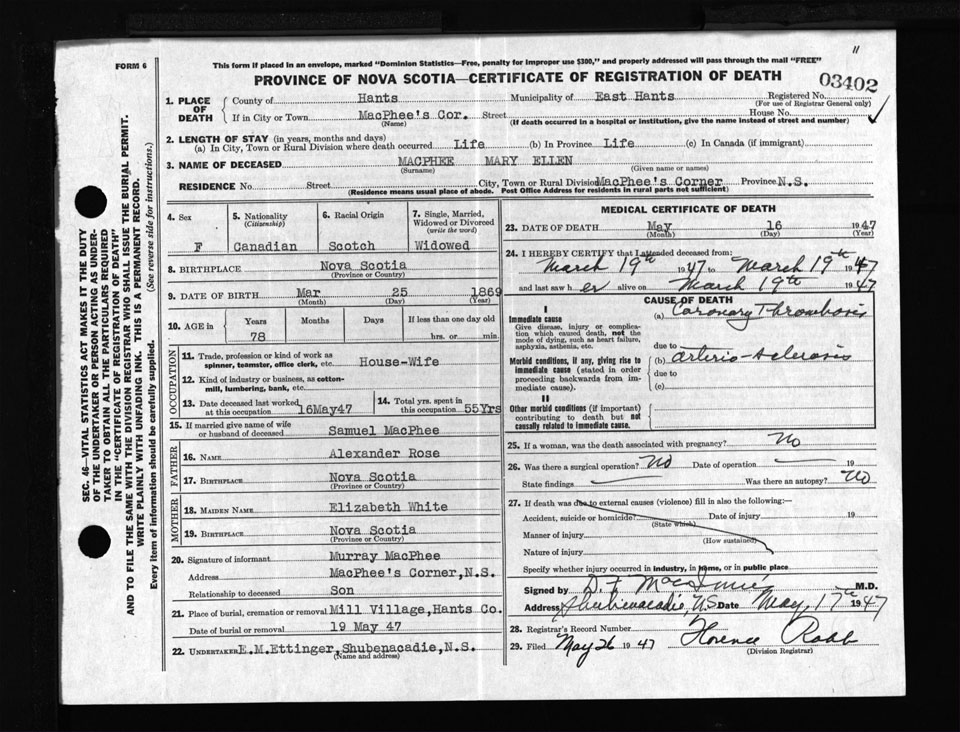 11
FORM 6
This form if placed in an envelope, marked "Dominion Statistics—Free, penalty for improper use $300," and properly addressed will pass through the mail "FREE"
PROVINCE OF NOVA SCOTIA—CERTIFICATE OF REGISTRATION OF DEATH
03402
SEC. 46—VITAL STATISTICS ACT MAKES IT THE DUTY
OF THE UNDERTAKER OR PERSON ACTING AS UNDER-
TAKER TO OBTAIN ALL THE PARTICULARS REQUIRED
IN THE "CERTIFICATE OF REGISTRATION OF DEATH"
AND TO FILE THE SAME WITH THE DIVISION REGISTRAR WHO SHALL ISSUE THE BURIAL PERMIT.
WRITE PLAINLY WITH UNFADING INK. THIS IS A PERMANENT RECORD.
Every item of information should be carefully supplied. (See reverse side for instructions.)
1. PLACE OF DEATH County of Hants Municipality of East Hants Registered No.
(For use of Registrar General only)
If in City or Town MacPhee's Cor. Street House No.
(Name) (If death occurred in a hospital or institution, give the name instead of street and number)
2. LENGTH OF STAY (in years, months and days)
(a) In City, Town or Rural Division where death occurred Life (b) In Province Life (c) In Canada (if immigrant)
3. NAME OF DECEASED MACPHEE MARY ELLEN
(Surname) (Given name or names)
RESIDENCE No. Street City, Town or Rural Division MacPhee's Corner Province N.S.
(Residence means usual place of abode. Post Office Address for residents in rural parts not sufficient)
4. Sex 5. Nationality (Citizenship) 6. Racial Origin 7. Single, Married, Widowed or Divorced (write the word)
F Canadian Scotch Widowed
8. BIRTHPLACE Nova Scotia
(Province or Country)
9. DATE OF BIRTH Mar 25 1869
(Month) (Day) (Year)
10. AGE in Years Months Days If less than one day old
78 hrs. or min.
OCCUPATION
11. Trade, profession or kind of work as spinner, teamster, office clerk, etc. House-Wife
12. Kind of industry or business, as cotton-mill, lumbering, bank, etc.
13. Date deceased last worked at this occupation 16May47 14. Total yrs. spent in this occupation 55Yrs
15. If married give name of wife or husband of deceased Samuel MacPhee
FATHER
16. NAME Alexander Rose
17. BIRTHPLACE Nova Scotia
(Province or Country)
MOTHER
18. MAIDEN NAME Elizabeth White
19. BIRTHPLACE Nova Scotia
(Province or Country)
20. Signature of informant Murray MacPhee
Address MacPhee's Corner,N.S.
Relationship to deceased Son
21. Place of burial, cremation or removal Mill Village,Hants Co.
Date of burial or removal 19 May 47
22. UNDERTAKER E.M.Ettinger,Shubenacadie,N.S.
(Name and address)
MEDICAL CERTIFICATE OF DEATH
23. DATE OF DEATH May 16 1947
(Month) (Day) (Year)
24. I HEREBY CERTIFY that I attended deceased from:
March 19th 1947 to March 19th 1947
and last saw her alive on March 19th 1947
CAUSE OF DEATH
I
Immediate cause (a) Coronary Thrombosis
Give disease, injury or complication which caused death, not the mode of dying, such as heart failure, asphyxia, asthenia, etc.
due to
Morbid conditions, if any, giving rise to immediate cause (stated in order proceeding backwards from immediate cause). (b) arterio-sclerosis
due to
(c)
II
Other morbid conditions (if important) contributing to death but not causally related to immediate cause.
25. If a woman, was the death associated with pregnancy? No
26. Was there a surgical operation? No Date of operation 19
State findings Was there an autopsy? No
27. If death was due to external causes (violence) fill in also the following:—
Accident, suicide or homicide? Date of injury 19
(State which)
Manner of injury
(How sustained)
Nature of injury
Specify whether injury occurred in industry, in home, or in public place
Signed by D. F. MacInnis M.D.
Address Shubenacadie, N.S Date May, 17th 1947
28. Registrar's Record Number
29. Filed May 26 1947 Florence Robb
(Division Registrar)